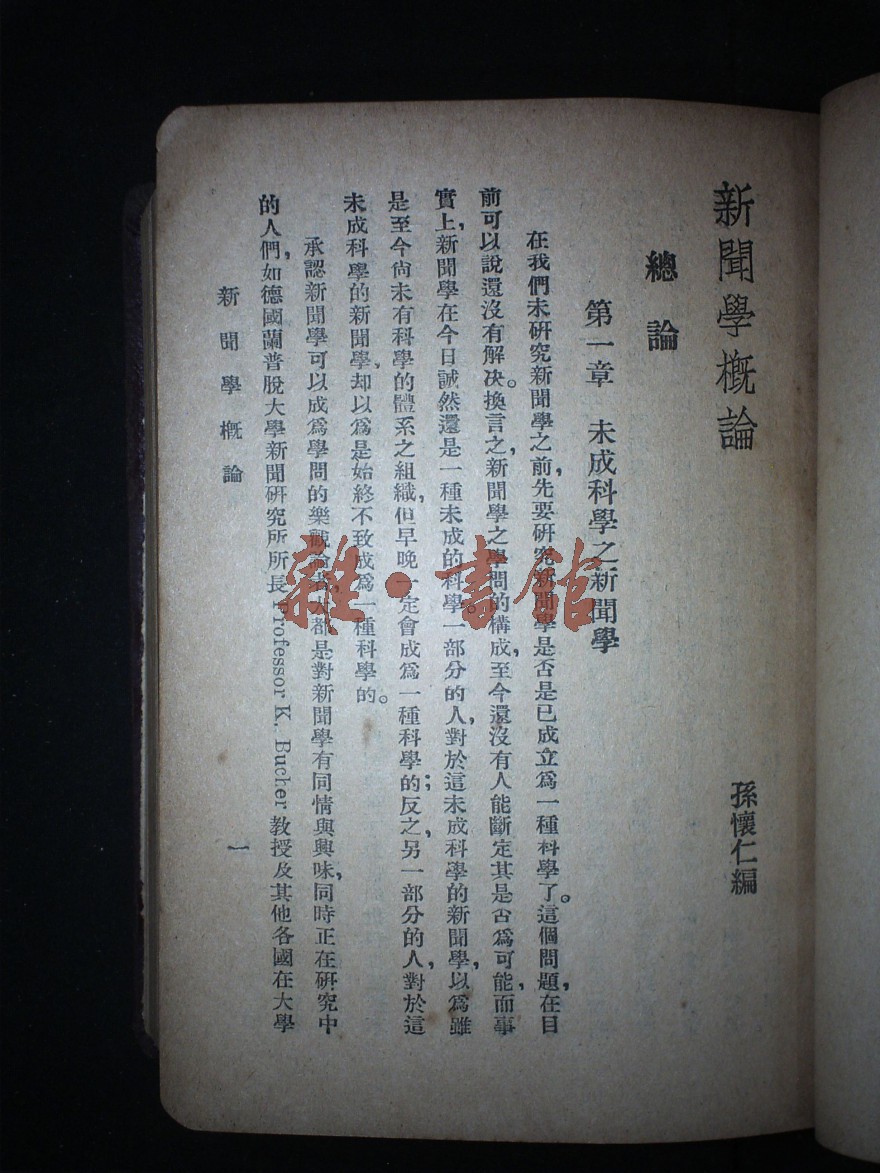 新聞學概論
孫懷仁編
總論
第一章 未成科學之新聞學
在我們未研究新聞學之前，先要研究新聞學是否是已成立爲一種科學了。這個問題，在目
前可以說還沒有解决。換言之，新聞學之學問的構成，至今還沒有人能斷定其是否爲可能，而事
實上，新聞學在今日誠然還是一種未成的科學。一部分的人，對於這未成科學的新聞學，以爲雖
是至今尙未有科學的體系之組織，但早晚一定會成爲一種科學的；反之，另一部分的人，對於這
未成科學的新聞學，却以爲是始終不致成爲一種科學的。
承認新聞學可以成爲學問的樂觀論者，都是對新聞學有同情與興味，同時正在研究中
的人們，如德國蘭普脫大學新聞研究所所長Professor K. Bucher教授及其他各國在大學
新聞學概論
一
雜·書館